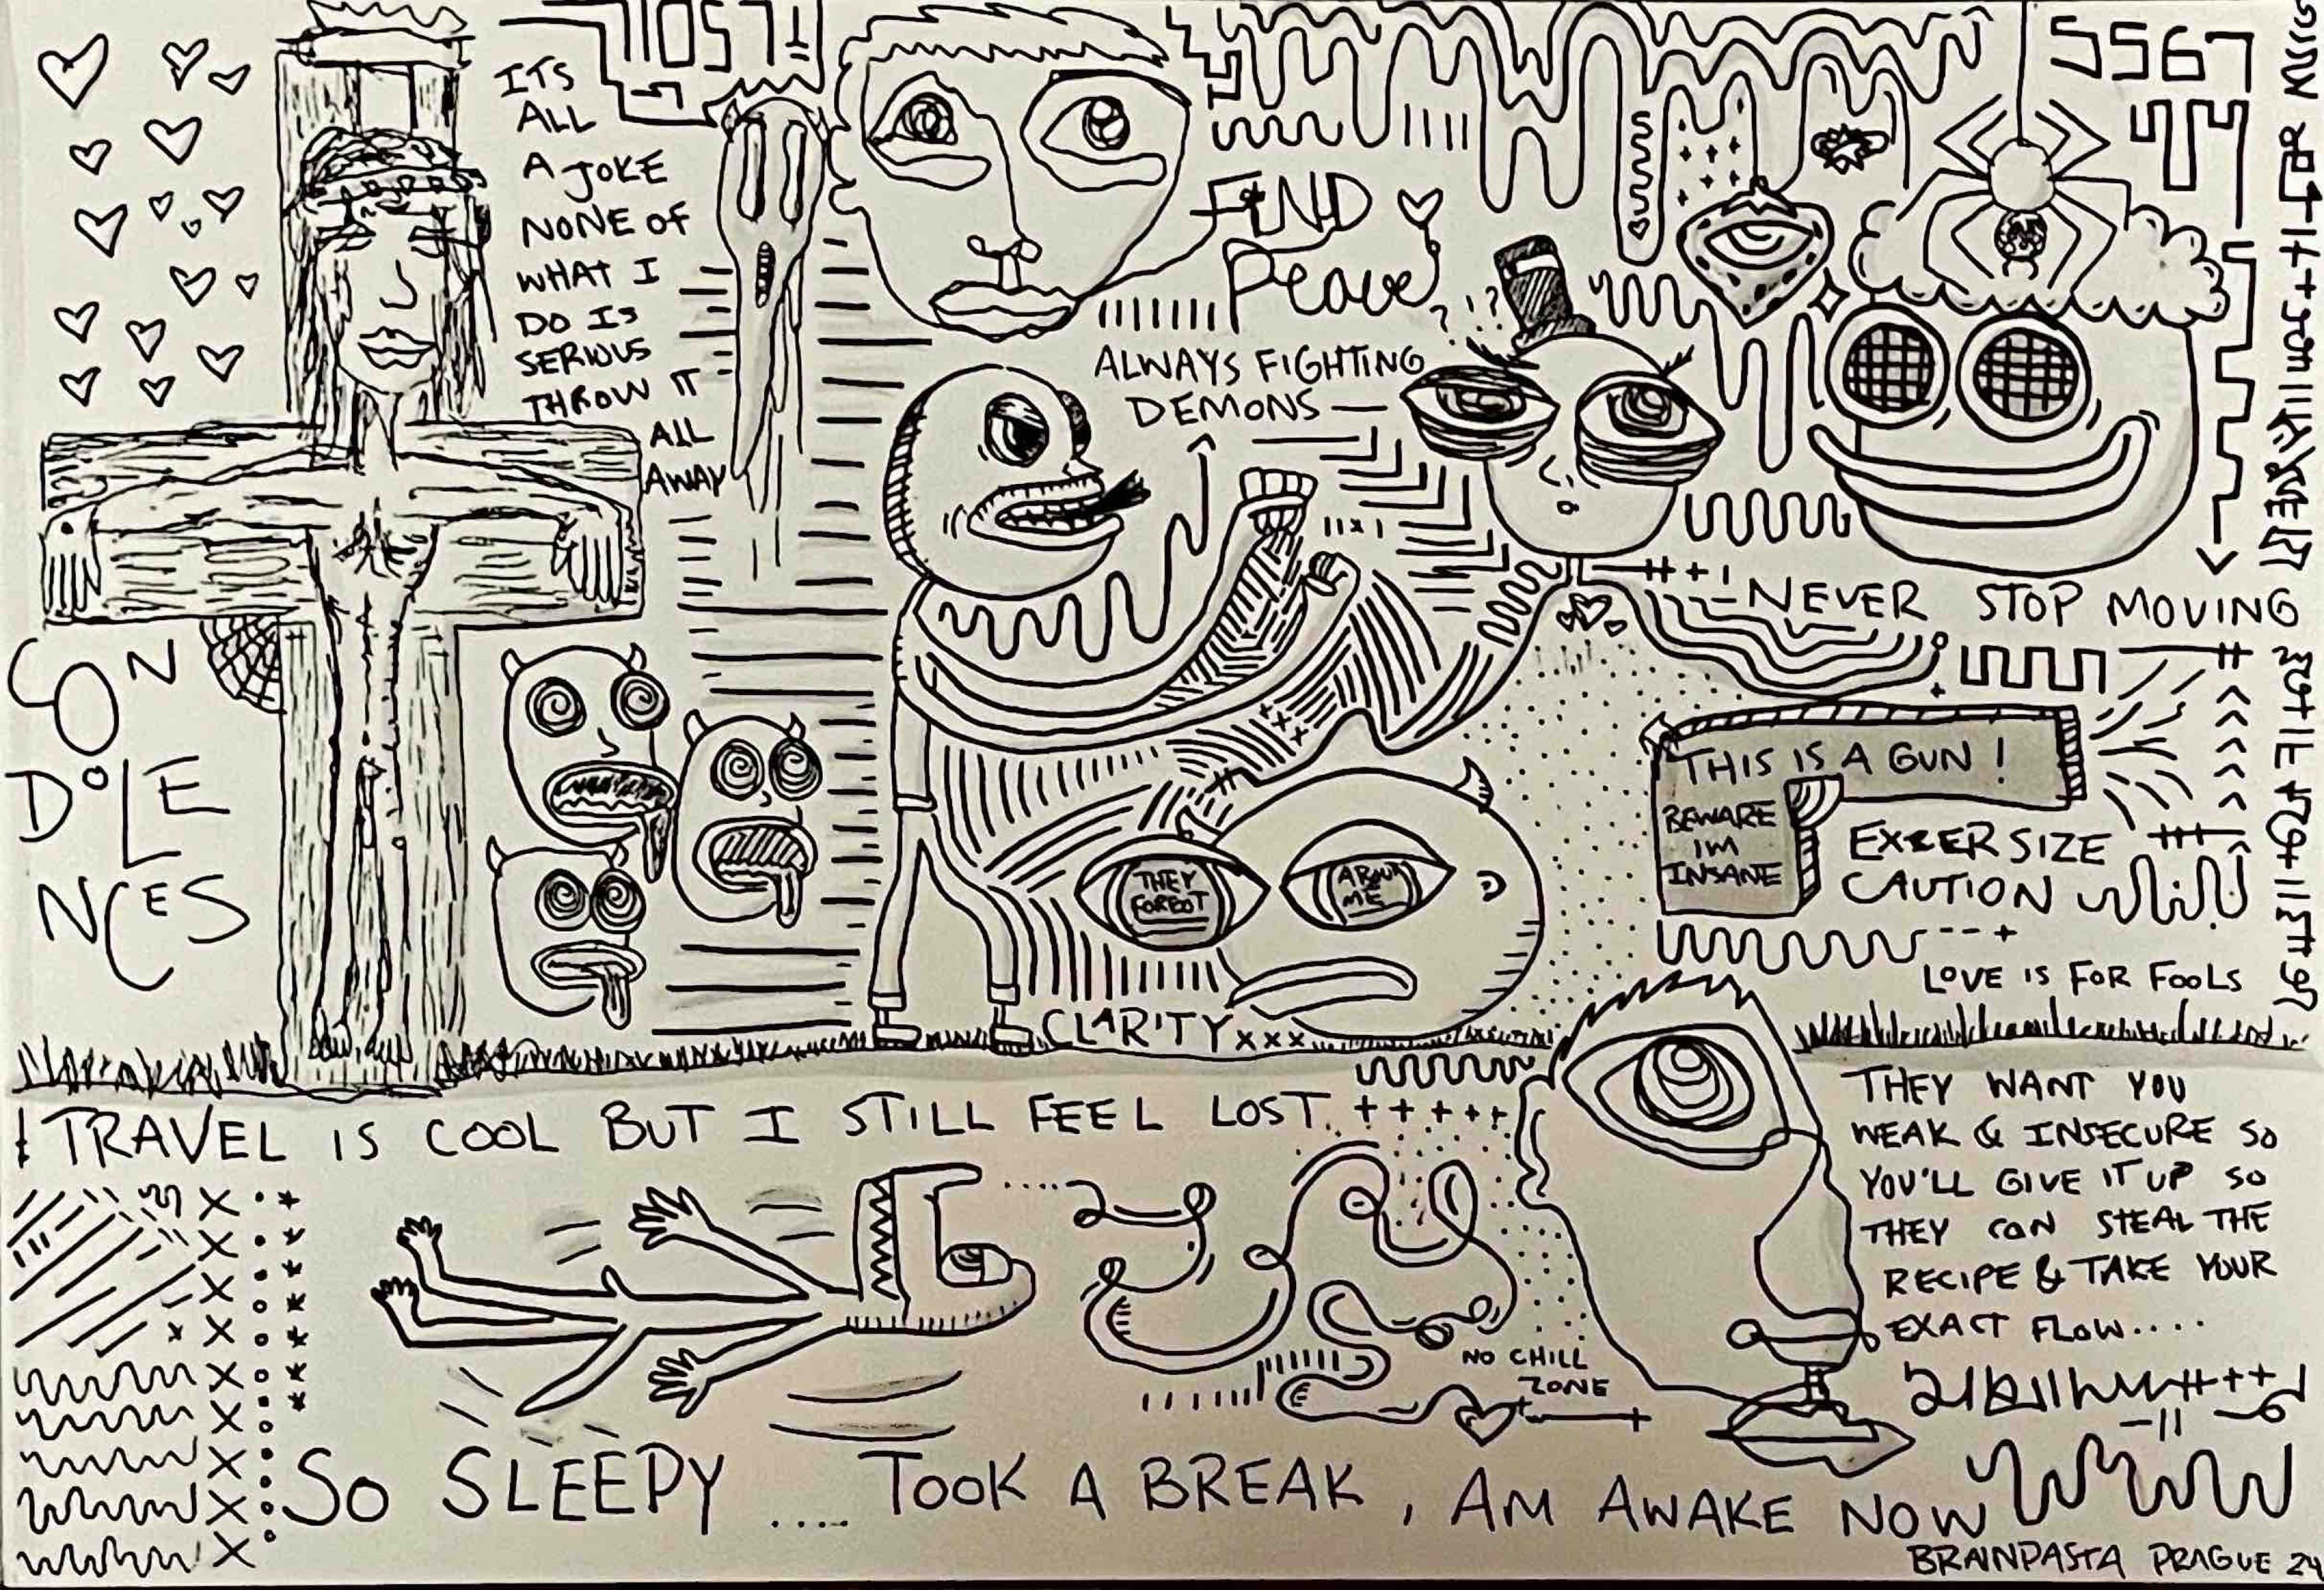 ITS
ALL
A JOKE
NONE OF
WHAT I
DO IS
SERIOUS
THROW IT
ALL
AWAY
LOST
FIND
Peace
ALWAYS FIGHTING
DEMONS
5567
NEVER STOP MOVING
CON
DOLE
NCES
THIS IS A GUN!
BEWARE
IM
INSANE
EXERSIZE
CAUTION
LOVE IS FOR FOOLS
THEY
FORGOT
ABOUT
ME
CLARITY xxx
TRAVEL IS COOL BUT I STILL FEEL LOST..
THEY WANT YOU
WEAK & INSECURE SO
YOU'LL GIVE IT UP SO
THEY CAN STEAL THE
RECIPE & TAKE YOUR
EXACT FLOW....
NO CHILL
ZONE
SO SLEEPY .... TOOK A BREAK, AM AWAKE NOW
BRAINPASTA PRAGUE 24